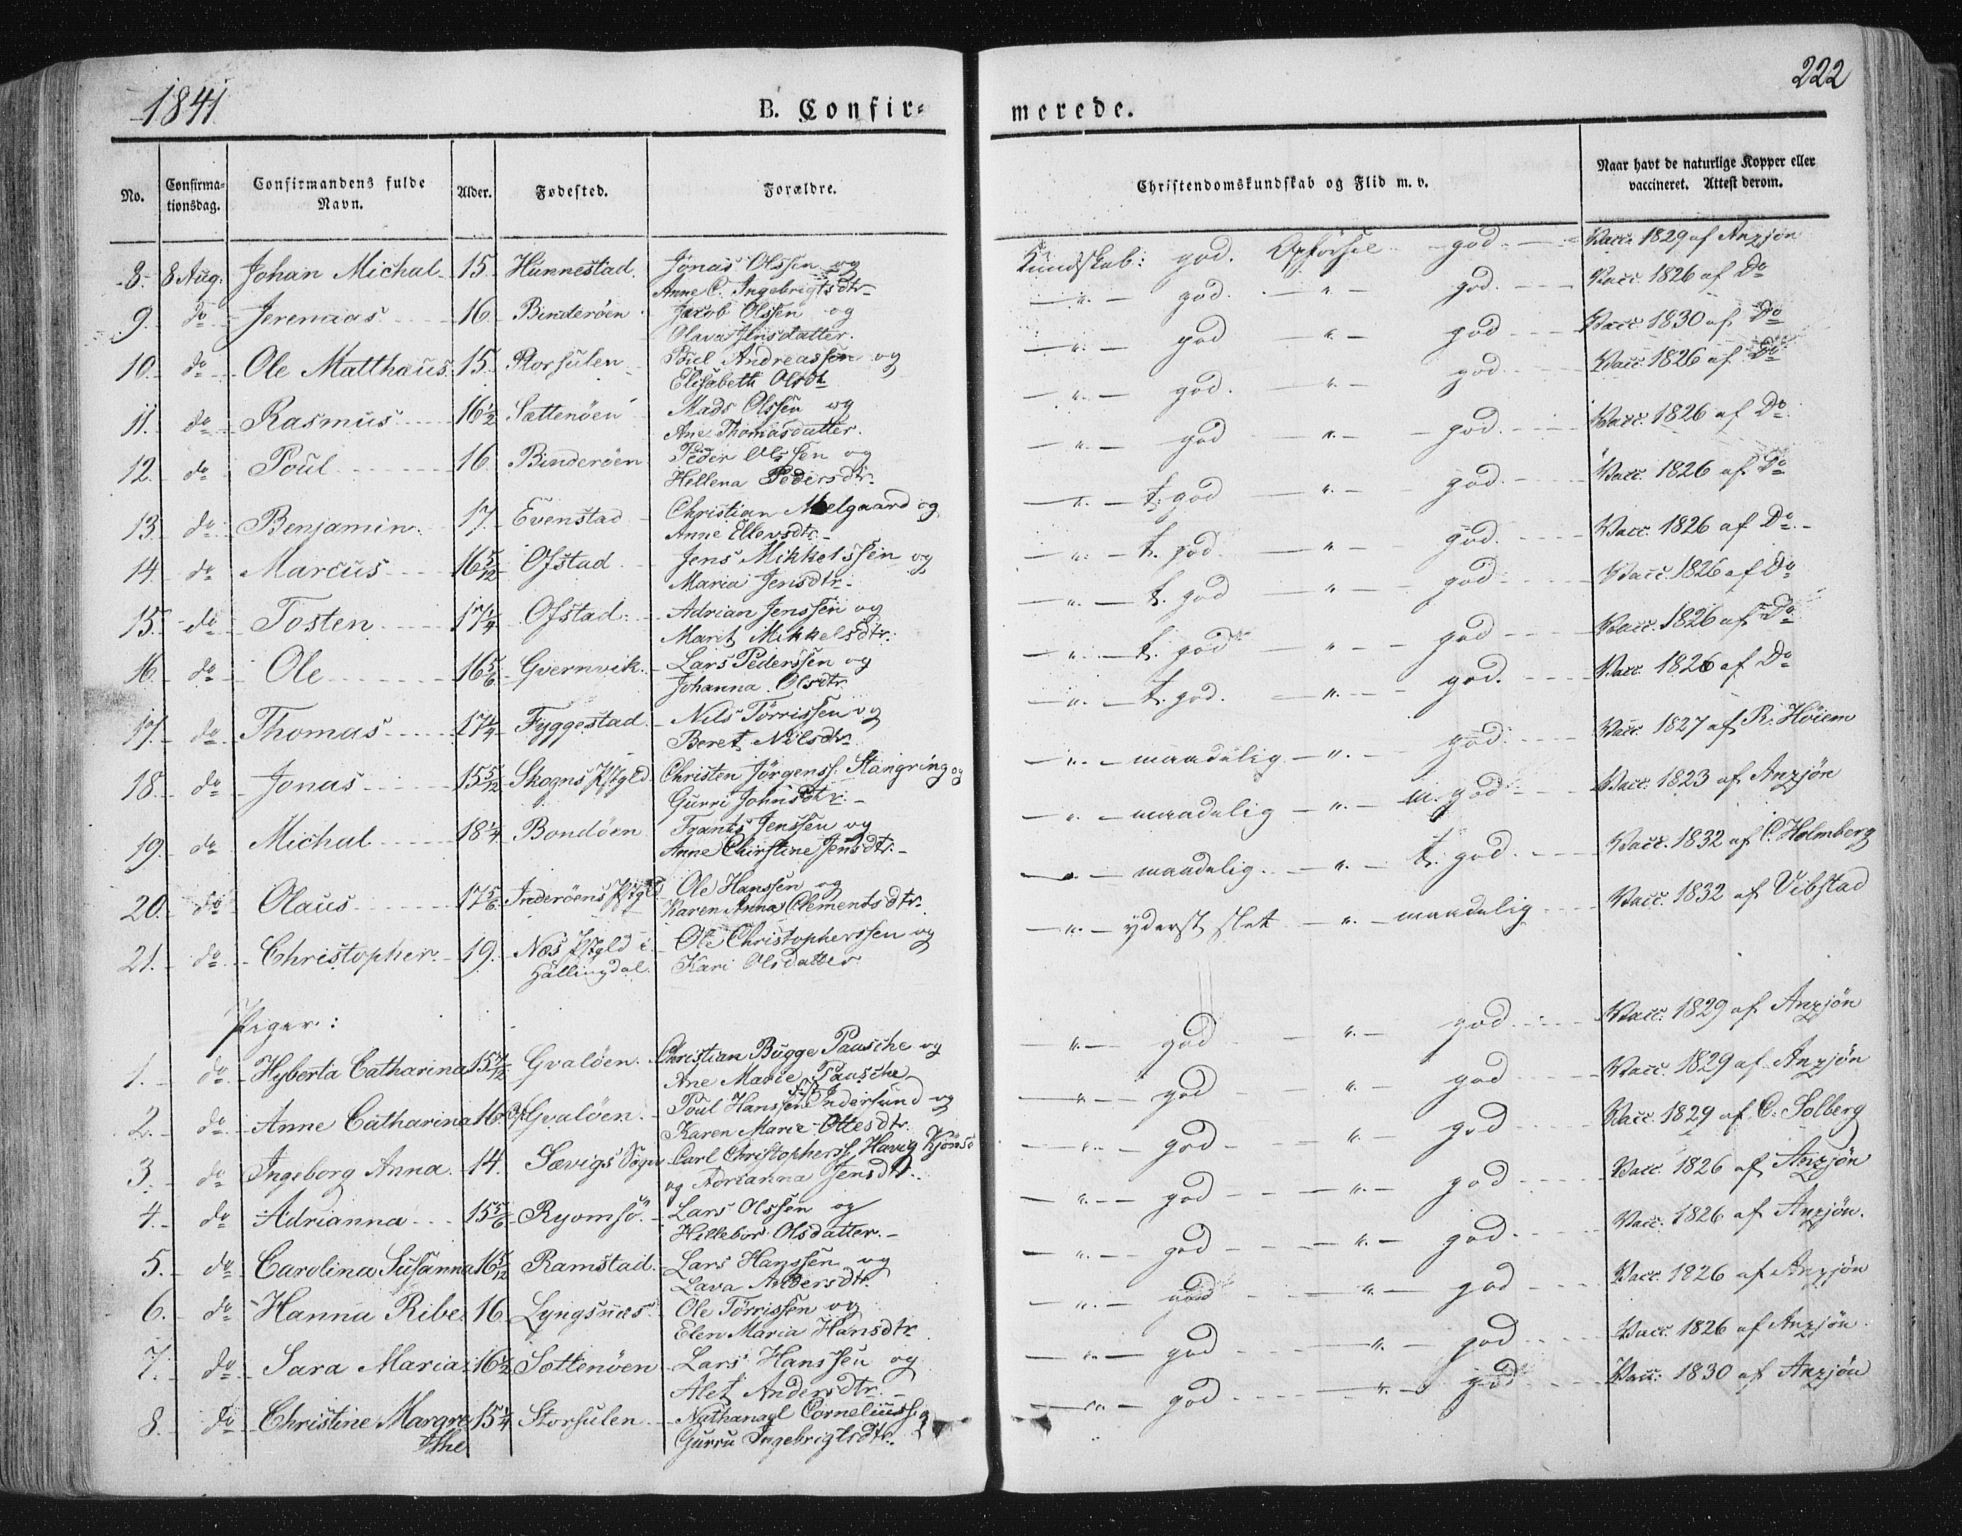 1841
B. Confir=
merede.
222
No.
Confirma-
tionsdag.
Confirmandens fulde
Navn.
Alder.
Fødested.
Forældre.
Christendomskundskab og Flid m. v.
Naar havt de naturlige Kopper eller
vaccineret. Attest derom.
8. 8 Aug: Johan Michal 15. Hunnestad. Jonas Olssen og
Anne C. Ingebrigtsdtr
Kundskab: god. Opførsel god. Vacc. 1829 af Anzjøn
9. do Jeremias 16 Binderøen Jakob Olssen og
Olava Jensdatter.
—"— god. —"— god. Vacc. 1826 af Do
10. do Ole Matthæus 15. Storsulen Poul Andreassen og
Elisabeth Olsdtr
—"— god —"— god Vacc. 1830 af Do
11. do Rasmus 16½ Sættenøen Mads Olssen og
Ane Thomasdatter.
—"— god. —"— god Vacc. 1826 af Do
12. do Poul 16. Binderøen Peder Olssen og
Hellena Pedersdtr.
—"— god —"— god. Vacc. 1826 af Do
13. do Benjamin 17 Evenstad Christian Melgaard og
Anne Ellevsdtr.
—"— t. god —"— god. Vacc. 1826 af Do
14 do Marcus 16 5/12 Ofstad Jens Mikkelssen og
Maria Jensdtr.
—"— t. god —"— god. Vacc. 1826 af Do
15. do Tosten 17¼ Ofstad. Adrian Jenssen og
Marit Mikkelsdtr.
—"— t. god —"— god Vacc. 1826 af Do
16. do Ole 16 5/6 Gvernvik. Lars Pederssen og
Johanna Olsdtr.
—"— t. god —"— god Vacc. 1826 af Do
17. do Thomas 17¼ Fyggestad. Nils Tørrissen og
Beret Nilsdtr.
—"— t. god. —"— god. Vacc. 1826 af Do
18. do Jonas 15 5/12 Skogns Pstgld Christen Jørgenss. Stangring og
Gurri Johnsdtr.
—"— maadelig —"— god. Vacc. 1827 af R. Høiem
19. do Michal 18¼ Bondøen Frants Jenssen og
Anne Chirstine Jensdtr.
—"— maadelig —"— m. god Vacc. 1823 af Anzjøn
20. do Olaus 17 5/6 Inderøens Pstgld Ole Hanssen og
Karen Anna Clementsdtr.
—"— maadelig. —"— t. god. Vacc. 1832 af C. Holmberg
21. do Christopher 19. Næs Pstgld i
Hallingdal. Ole Christopherssen og
Kari Olsdatter
—"— yderst slet —"— maadelig Vacc. 1832 af Vibstad
Piger:
1. do Hyberta Catharina 15 7/12 Gvaløen. Christian Bugge Pausche og
Ane Marie Pausche
—"— god —"— god. Vacc. 1829 af Anzjøn
2. do Anne Catharina 16 Gvaløen. Poul Hanssen Indersund og
Karen Marie Ottesdtr.
—"— god —"— god Vacc. 1829 af Anzjøn
3. do Ingeborg Anna. 14. Sævigs Carl Christopherss. Havig
og Adrianna Jensdtr.
—"— god —"— god Vacc. 1829 af C. Solberg
4. do Adrianna 15 5/6 Ryomsø. Lars Olssen og
Hillebor Olsdatter.
—"— god —"— god Vacc. 1826 af Anzjøn
5. do Carolina Susanna 16 5/12 Ramstad. Lars Hanssen og
Lava Andersdtr.
—"— god —"— god. Vacc. 1826 af Anzjøn.
6. do Hanna Ribe 16. Lyngsnæs Ole Tørrissen og
Elen Maria Hansdtr.
—"— god —"— god Vacc. 1826 af Anzjøn
7. do Sara Maria 16½ Søttenøen Lars Hanssen og
Alet Andersdtr.
—"— god —"— god Vacc. 1826 af Anzjøn
8. do Christine Margre
the 15¼ Storsulen Nathanael Corneliuss. og
Gurru Ingebrigtsdtr.
—"— god —"— god Vacc. 1830 af Anzjøn